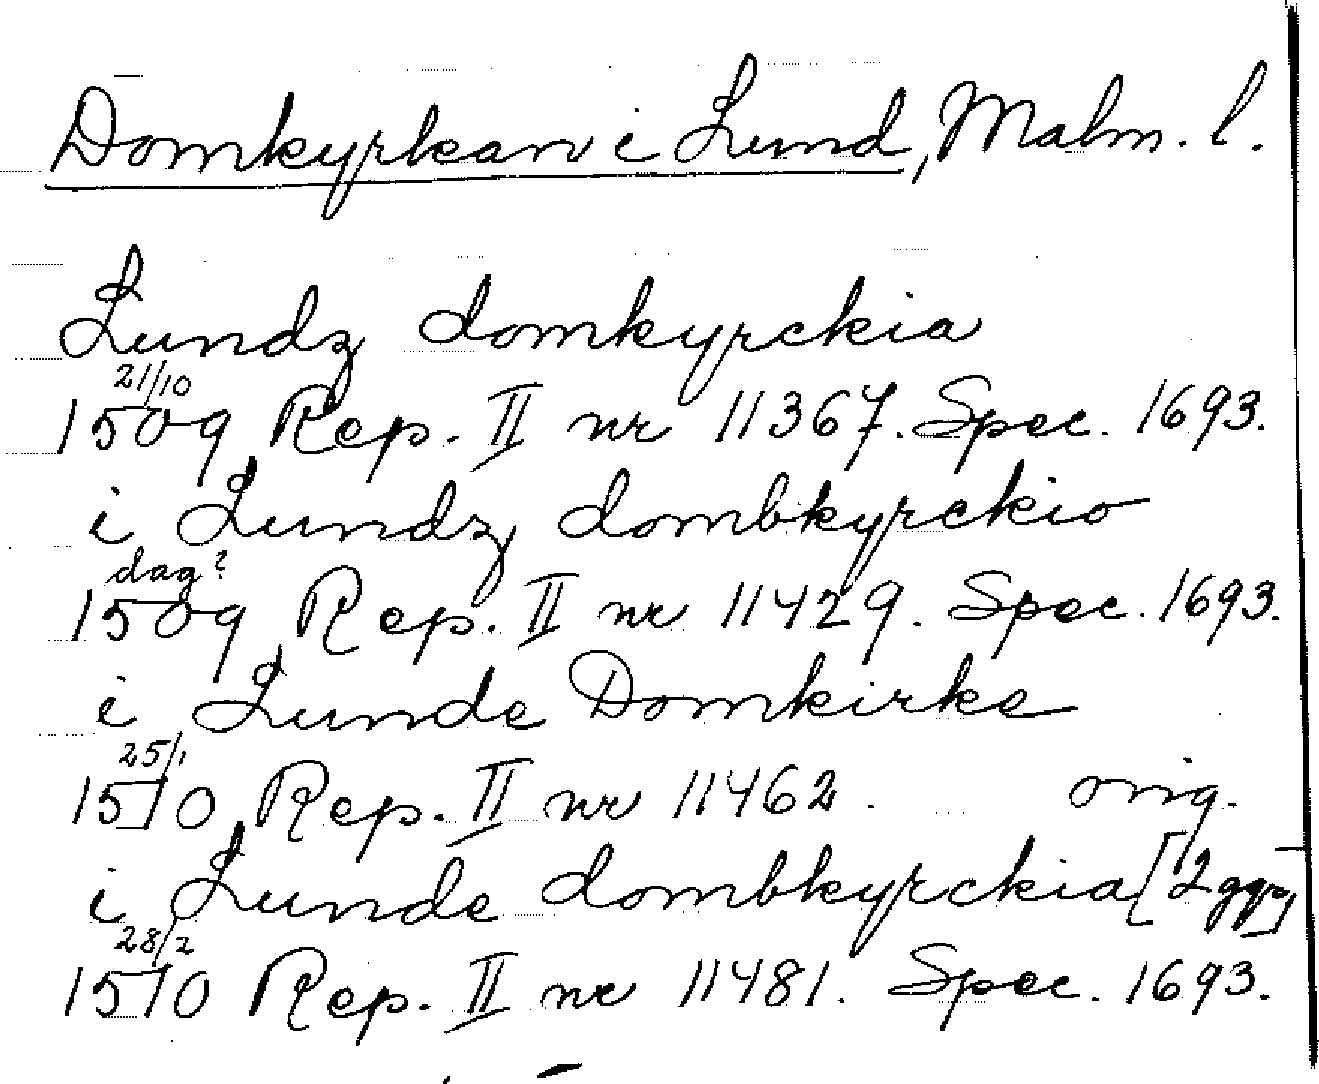 Domkyrkan i Lund, Malm. l.
Lundz domkyrckia
21/10
1509 Rep. II nr 11367. Spec. 1693.
i Lundz dombkyrckio
dag?
1509 Rep. II nr 11429. Spec. 1693.
i Lunde Domkirke
25/1
1510 Rep. II nr 11462. orig.
i Lunde dombkyrckia [2 ggr]
28/2
1510 Rep. II nr 11481. Spec. 1693.